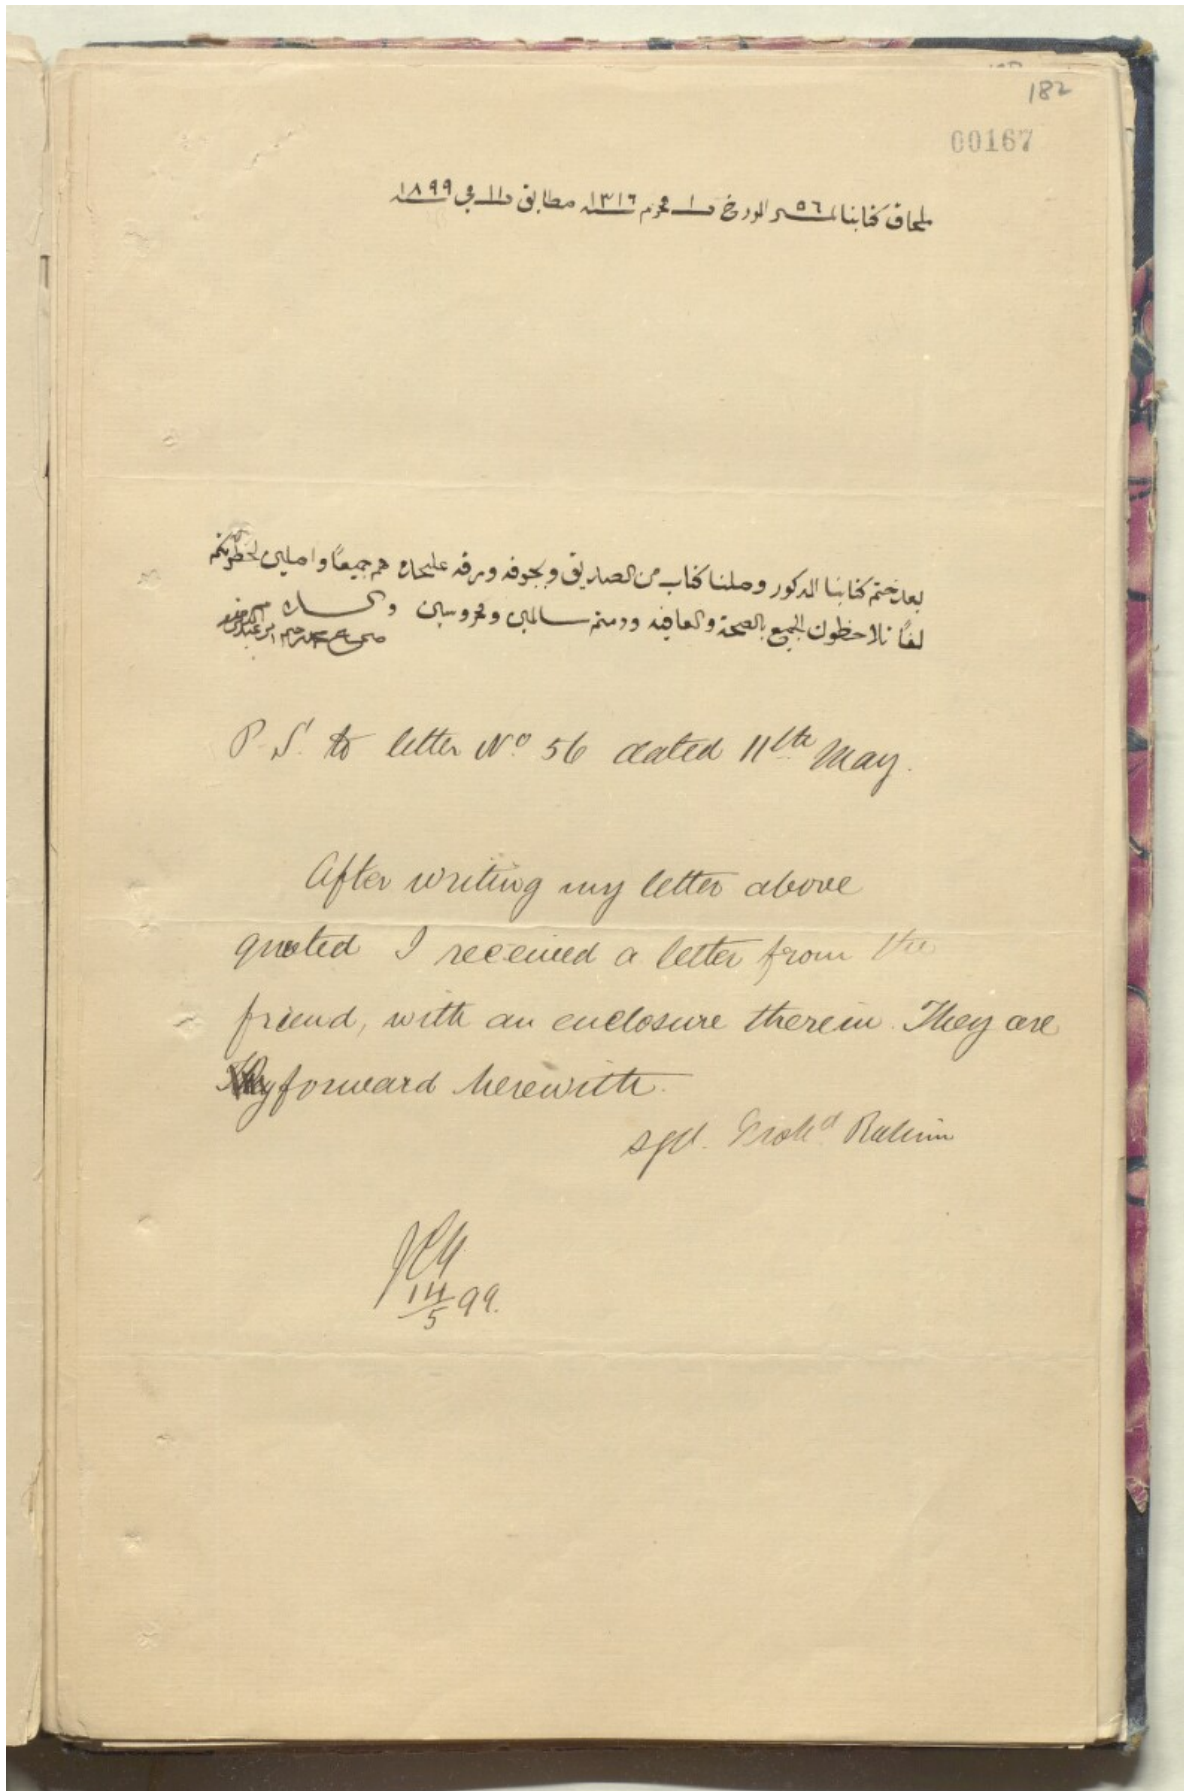 182
00167
ملحاق كتابنا نمر ٥٦ المورخ ١ محرم ١٣١٦ مطابق ١١ مي ١٨٩٩
بعد ختم كتابنا المذكور وصلنا كتاب من الصديق وبجوفه ورقه عليحده هم جميعًا واصلين لحظرتكم
لفًا تلاحظون الجميع بالصحة والعافيه ودمتم سالمين ومحروسين والسلام
P.S. to letter No. 56 dated 11th May.
After writing my letter above
quoted I received a letter from the
friend, with an enclosure therein. They are
forward herewith.
sgd. Mohd. Rahim
14/5 99.